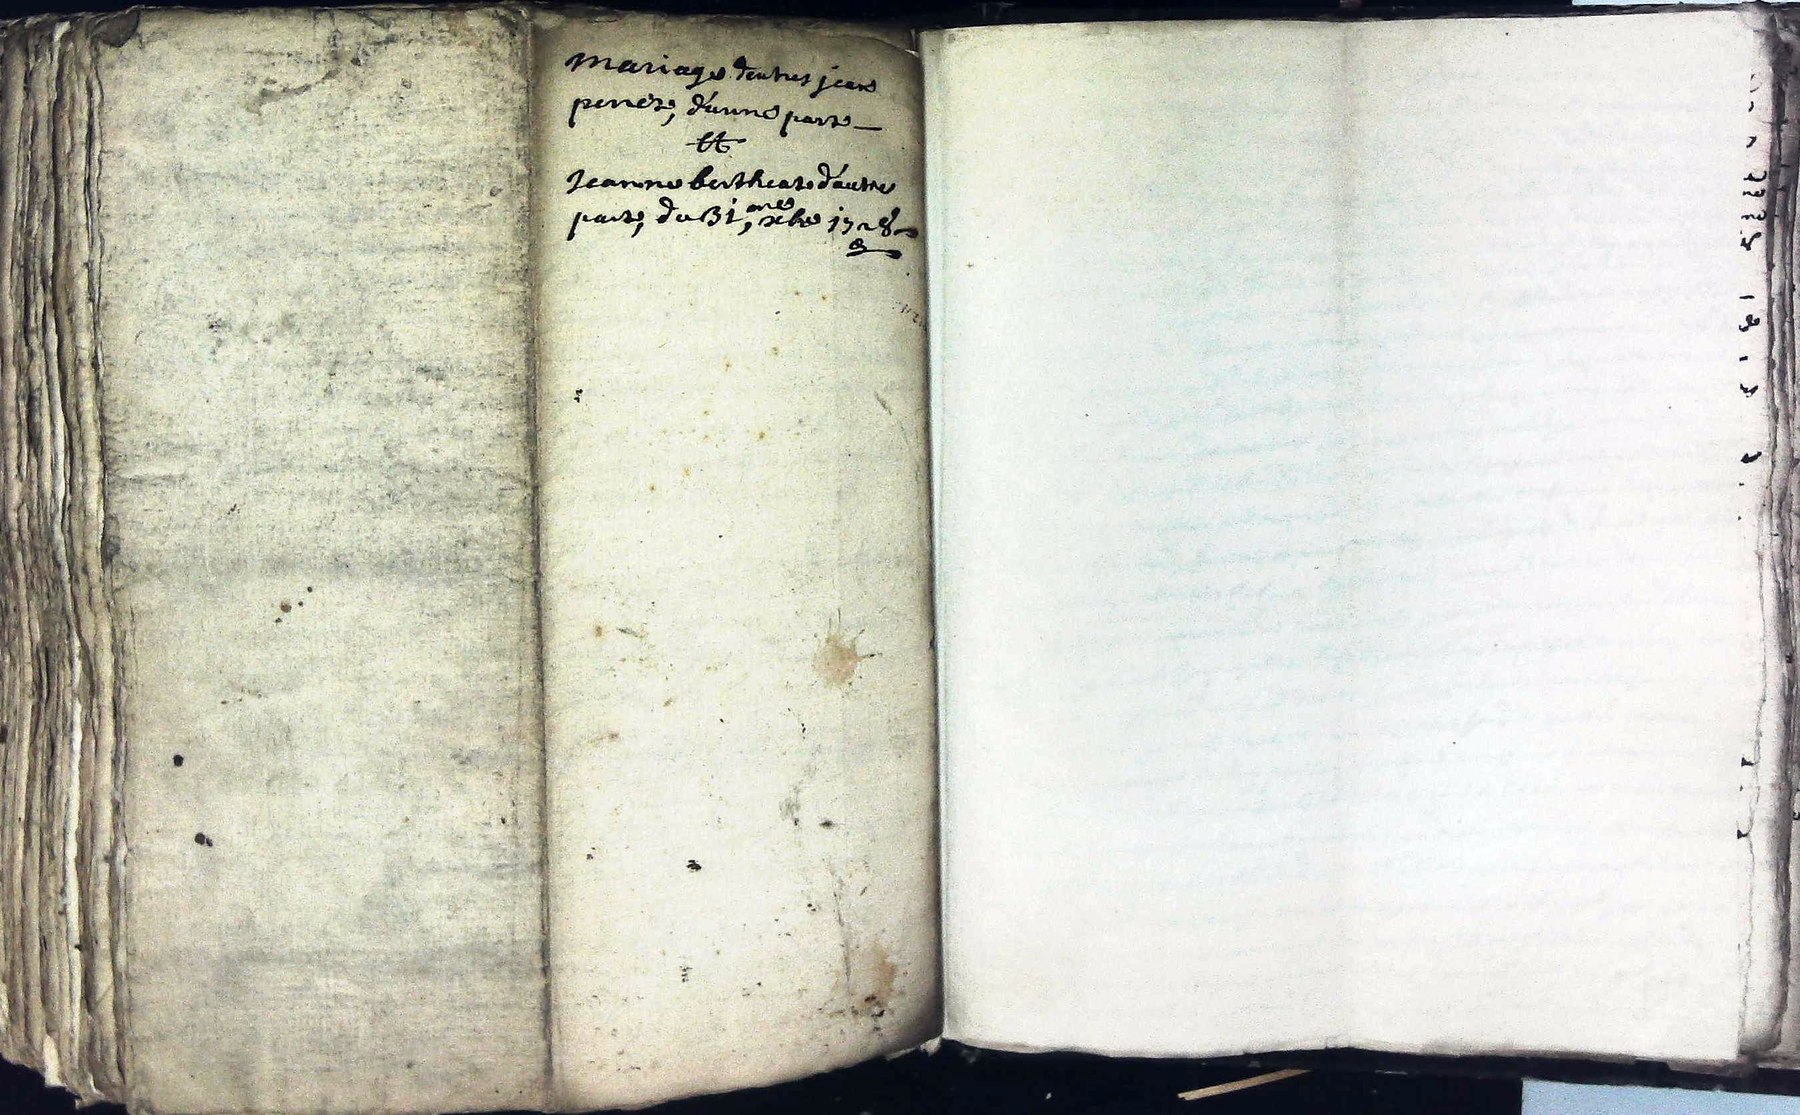 Mariage d'entres jean
peret, d'aune parte
Et
Jeanne bertheas d'autre
parte, du 31, xbre 1728